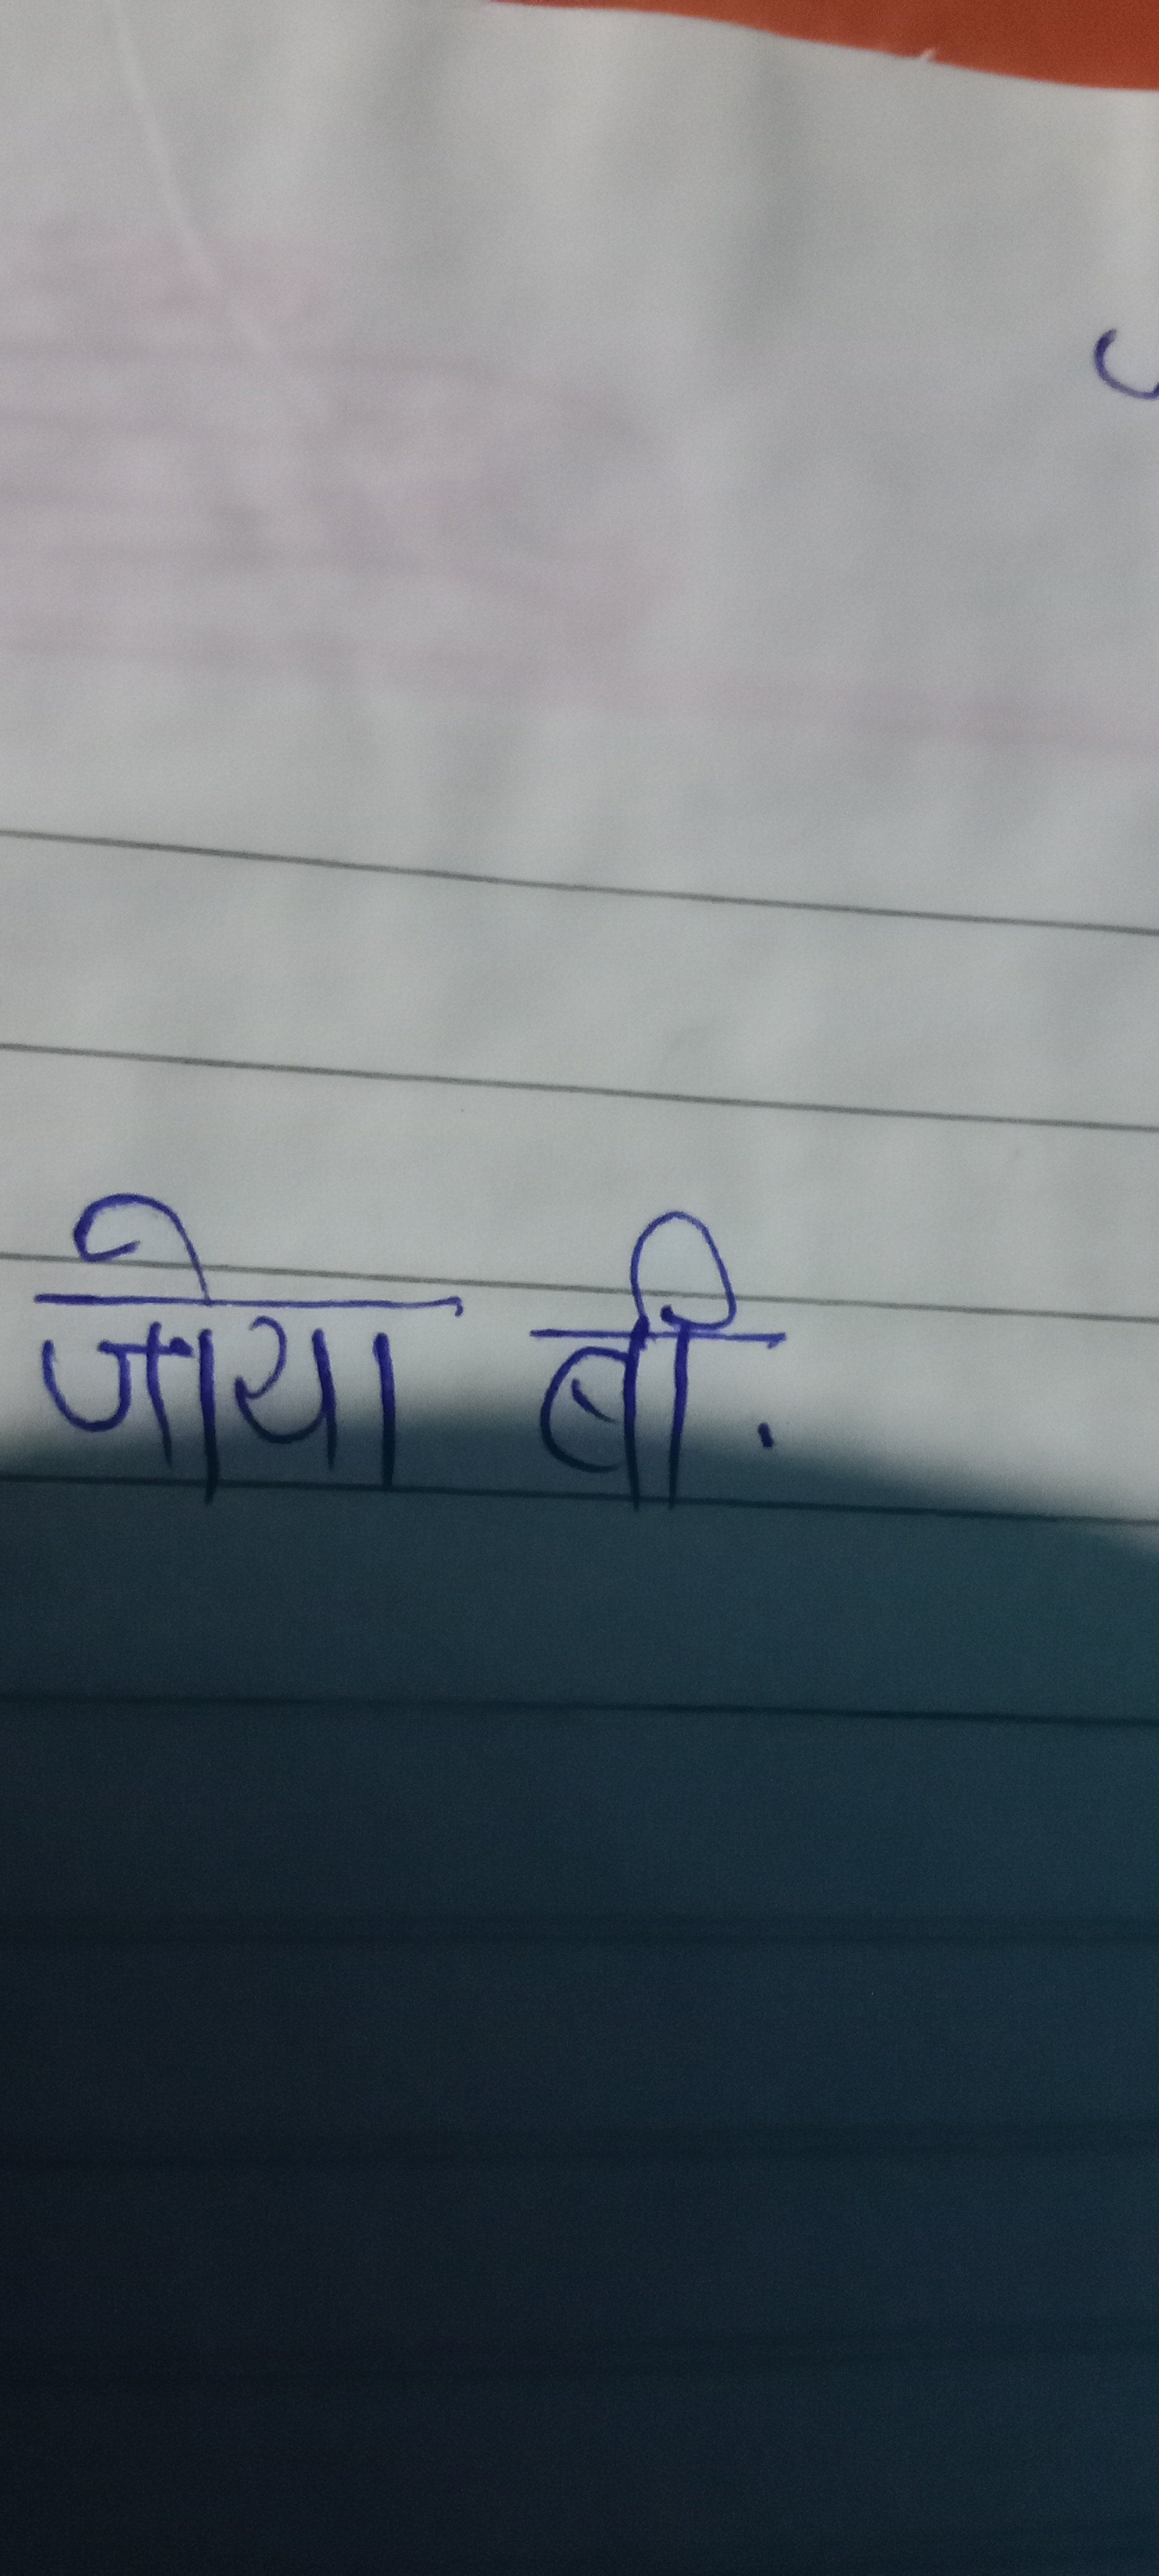 जीया बी.